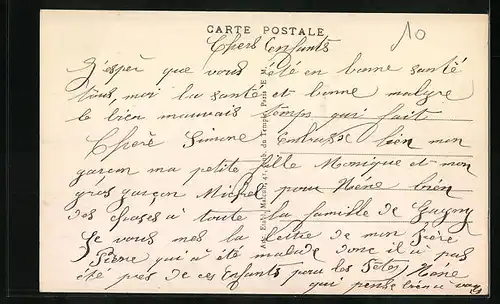 CARTE POSTALE
10
Chers Enfants
J'espèr que vous été en bonne santé
tous, moi la santé et bonne malgre
le bien mauvais temps qui fait
Cherè Simone Embrasse bien mon
garcon ma petite fille Monique et mon
gros garçon Michel pour Néne bien
des choses a toute la famille de Gugny
Je vous mes la lettre de mon Frère
Pierre qui a été malade donc il a pas
été près de ces Enfants pour les Fetes Néne
qui pense bien a vous